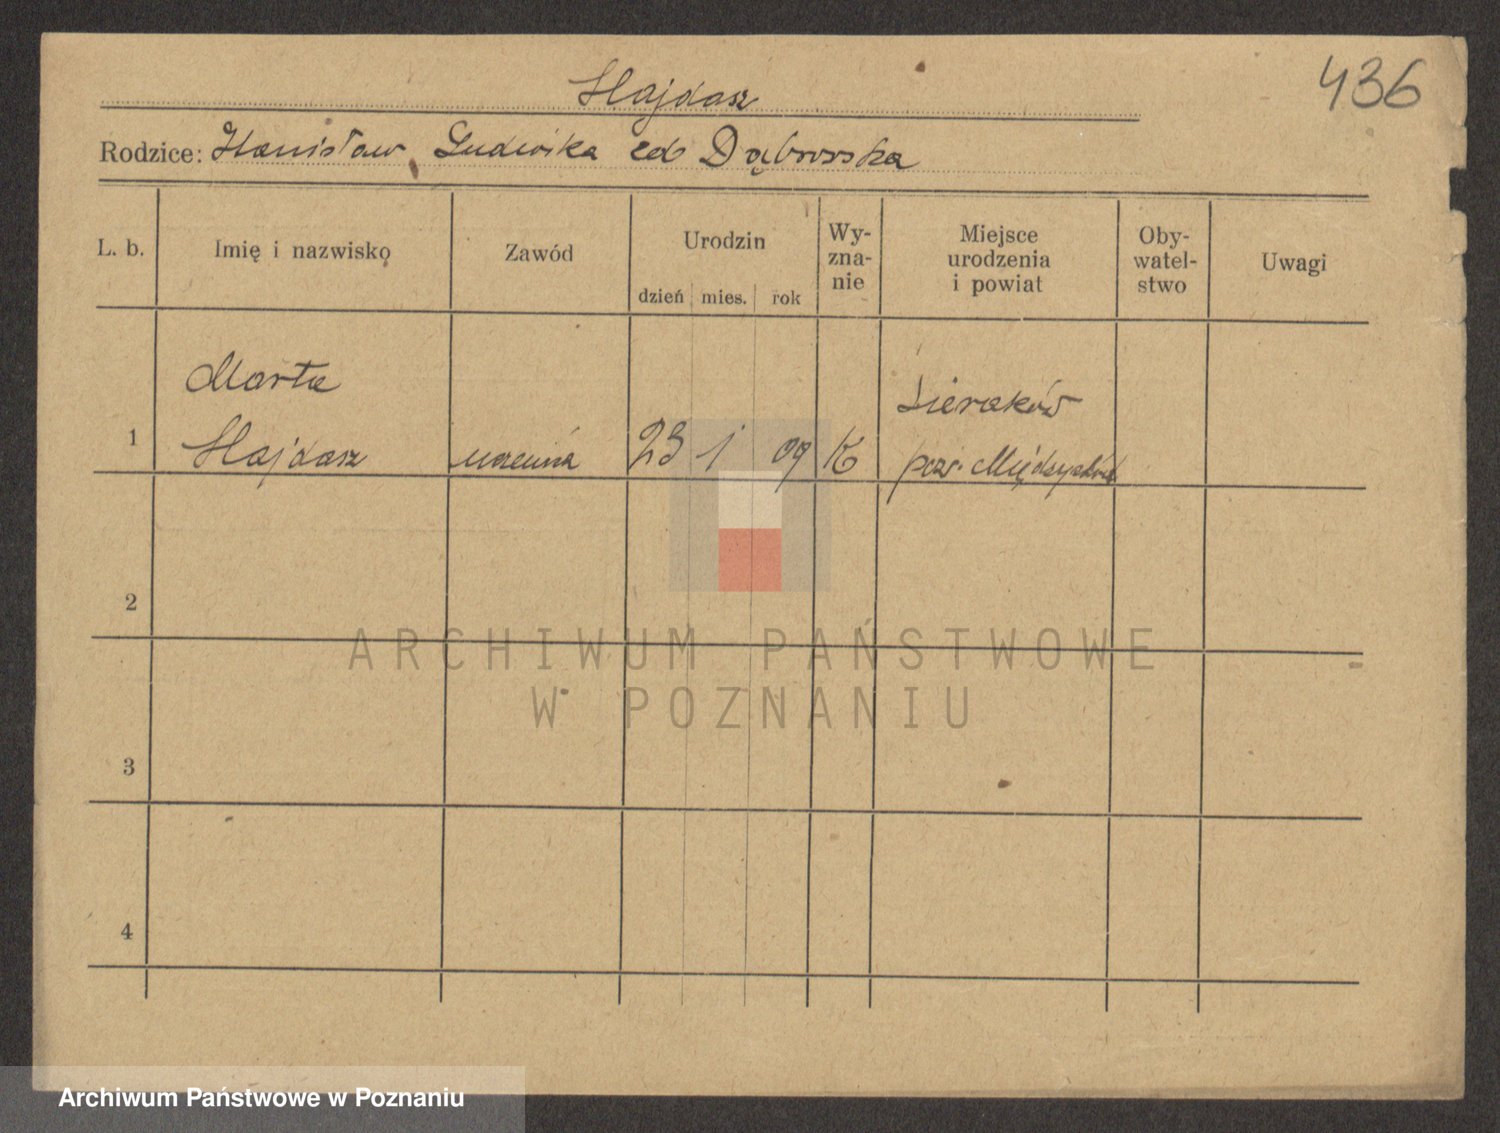 436
Hajdasz
Rodzice: Stanisław Ludwika cd Dąbrowska
L. b.
Imię i nazwisko
Zawód
Urodzin
dzień mies. rok
Wy-
zna-
nie
Miejsce
urodzenia
i powiat
Oby-
watel-
stwo
Uwagi
1
Marta
Hajdasz
uczenica
23 1 09
K
Sieraków
pow. Międzychód
2
3
4
ARCHIWUM PAŃSTWOWE
W POZNANIU
Archiwum Państwowe w Poznaniu